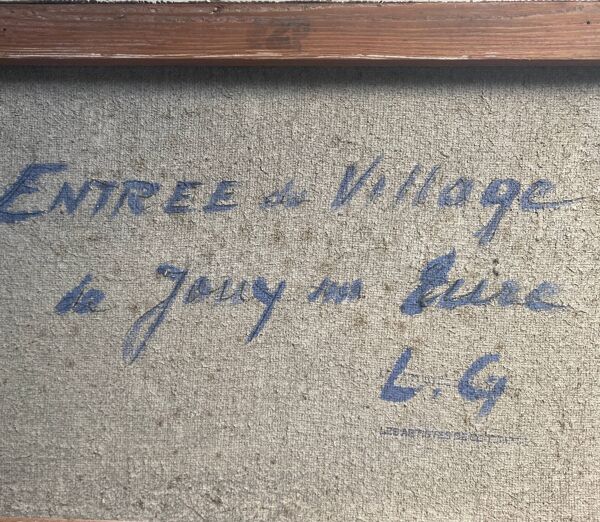 ENTREE de Village
de Jouy en Eure
L.G
LES ARTISTES DE